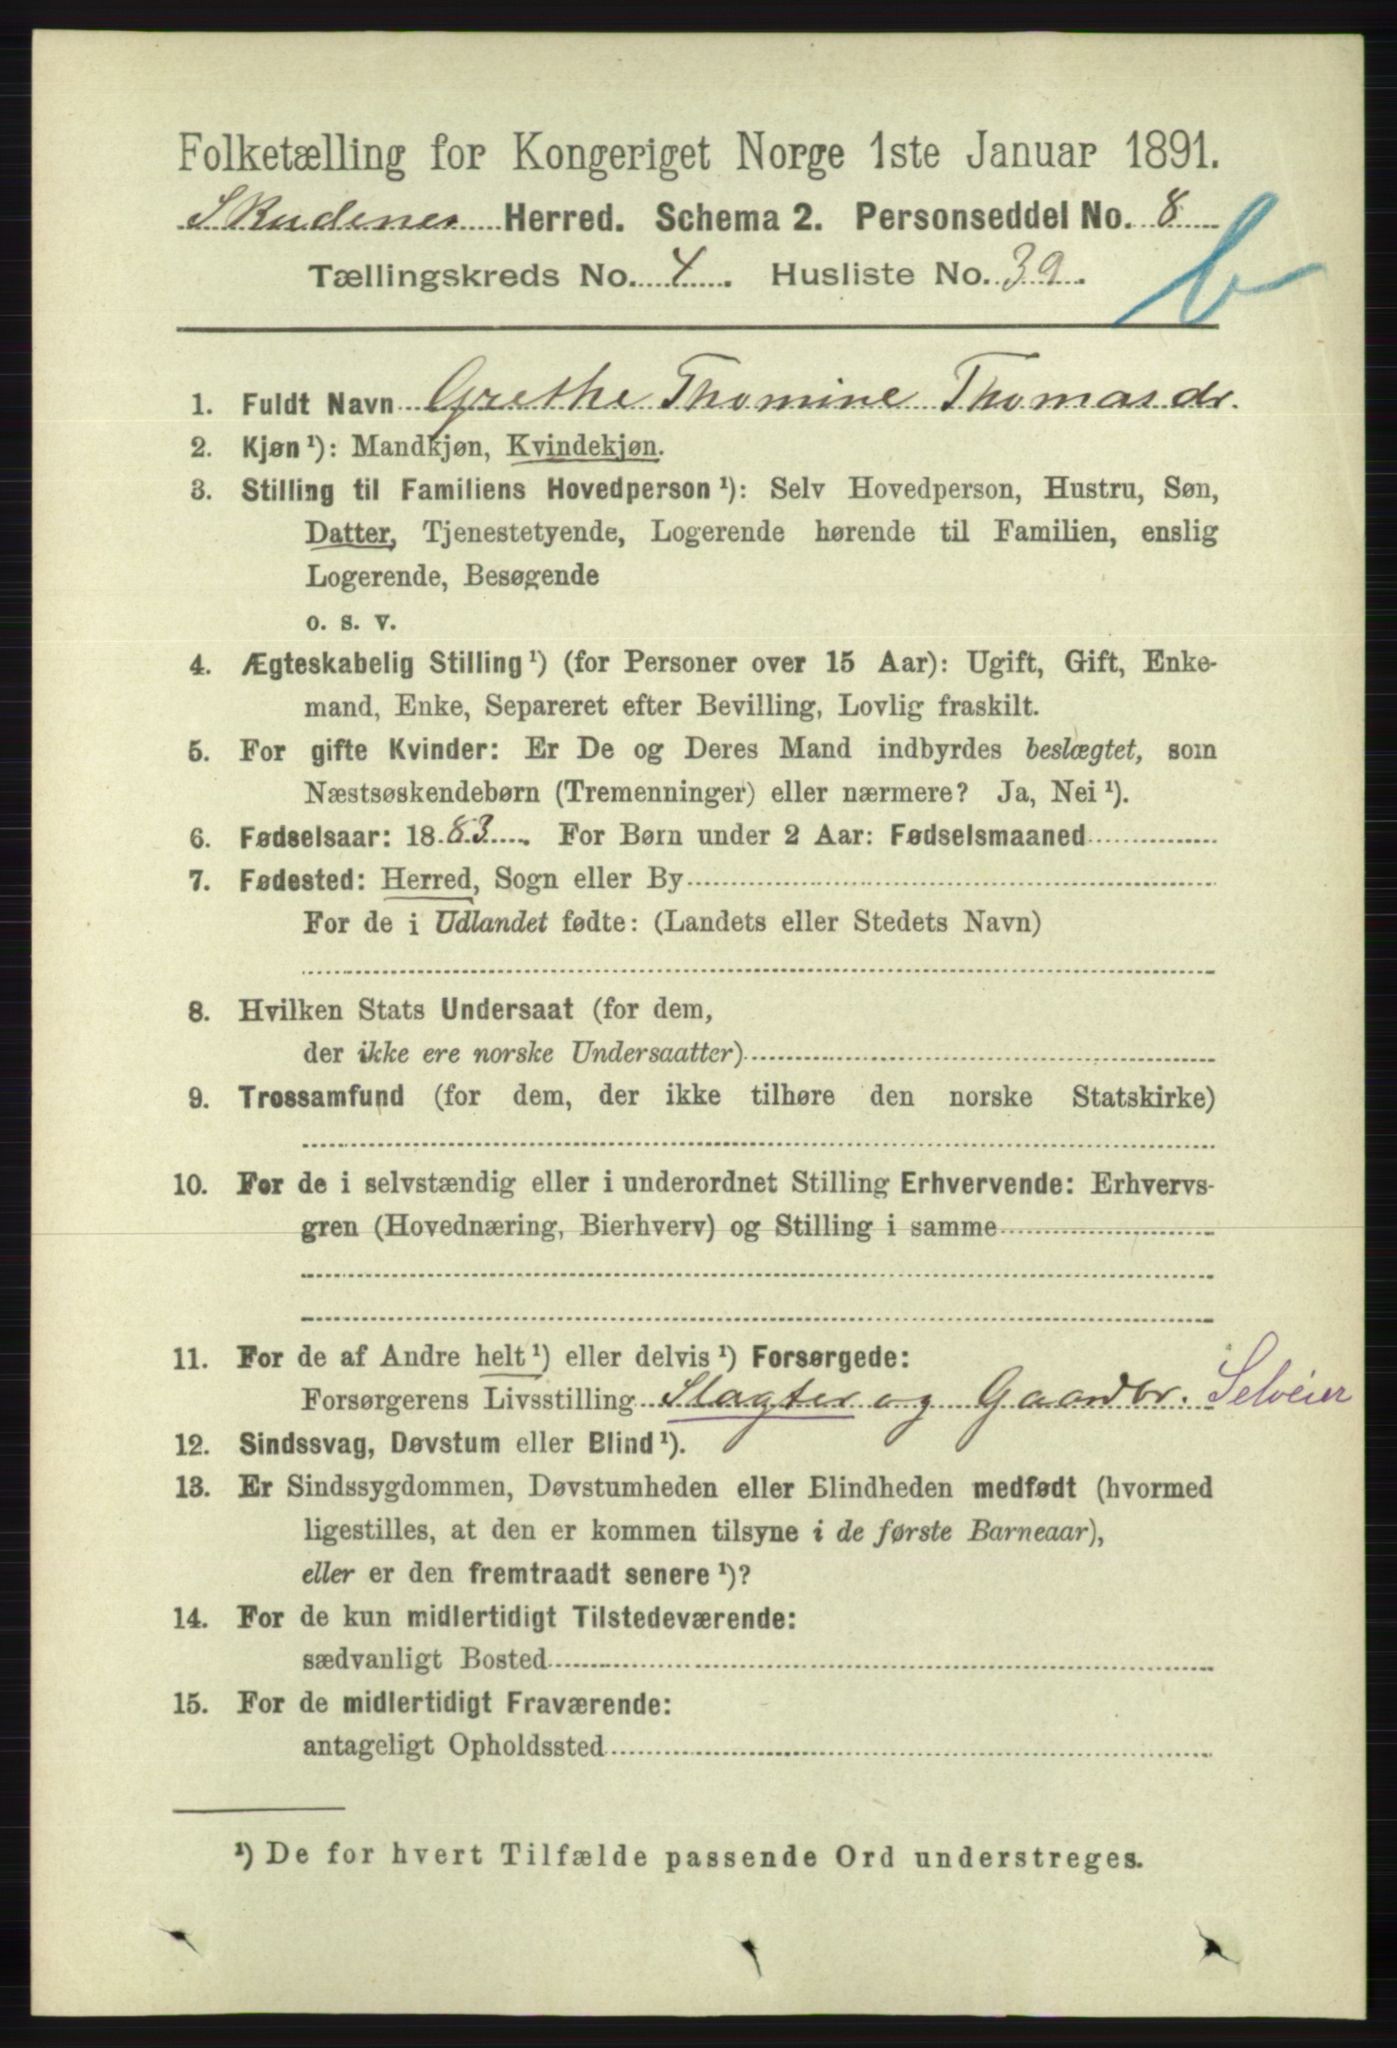 Folketælling for Kongeriget Norge 1ste Januar 1891.
Skudenes Herred. Schema 2. Personseddel No. 8
Tællingskreds No. 4. Husliste No. 39.
b
1. Fuldt Navn Grethe Thomine Thomasdr.
2. Kjøn ¹): Mandkjøn, Kvindekjøn.
3. Stilling til Familiens Hovedperson ¹): Selv Hovedperson, Hustru, Søn,
Datter, Tjenestetyende, Logerende hørende til Familien, enslig
Logerende, Besøgende
o. s. v.
4. Ægteskabelig Stilling ¹) (for Personer over 15 Aar): Ugift, Gift, Enke-
mand, Enke, Separeret efter Bevilling, Lovlig fraskilt.
5. For gifte Kvinder: Er De og Deres Mand indbyrdes beslægtet, som
Næstsøskendebørn (Tremenninger) eller nærmere? Ja, Nei ¹).
6. Fødselsaar: 1883. For Børn under 2 Aar: Fødselsmaaned
7. Fødested: Herred, Sogn eller By
For de i Udlandet fødte: (Landets eller Stedets Navn)
8. Hvilken Stats Undersaat (for dem,
der ikke ere norske Undersaatter)
9. Trossamfund (for dem, der ikke tilhøre den norske Statskirke)
10. For de i selvstændig eller i underordnet Stilling Erhvervende: Erhvervs-
gren (Hovednæring, Bierhverv) og Stilling i samme
11. For de af Andre helt ¹) eller delvis ¹) Forsørgede:
Forsørgerens Livsstilling Slagter og Gaardbr. Selveier
12. Sindssvag, Døvstum eller Blind ¹).
13. Er Sindssygdommen, Døvstumheden eller Blindheden medfødt (hvormed
ligestilles, at den er kommen tilsyne i de første Barneaar),
eller er den fremtraadt senere ¹)?
14. For de kun midlertidigt Tilstedeværende:
sædvanligt Bosted
15. For de midlertidigt Fraværende:
antageligt Opholdssted
¹) De for hvert Tilfælde passende Ord understreges.